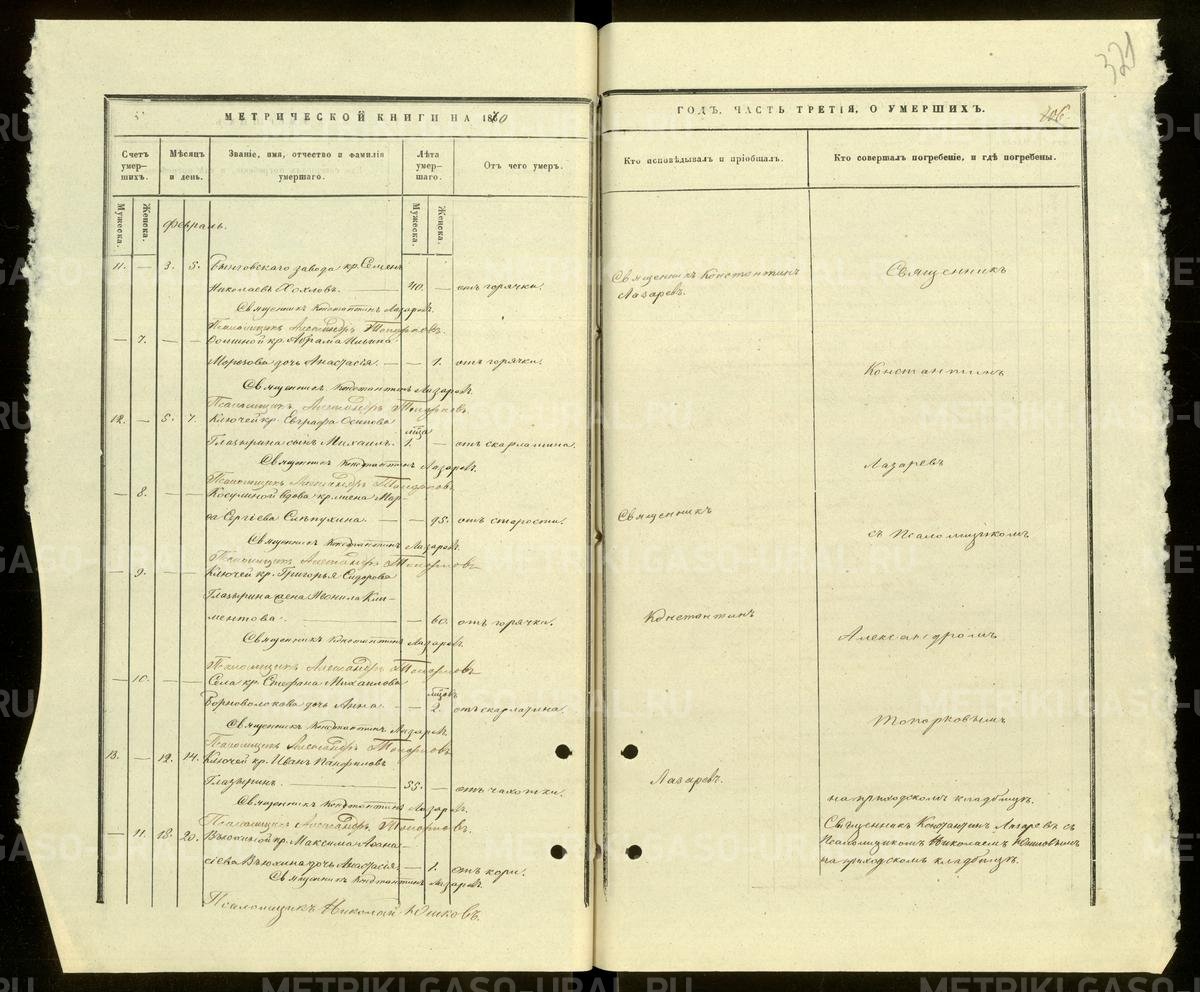 321
МЕТРИЧЕСКОЙ КНИГИ НА 1880
ГОДЪ, ЧАСТЬ ТРЕТІЯ, О УМЕРШИХЪ.
106
Счетъ умер-шихъ.
Мѣсяцъ и день.
Званіе, имя, отчество и фамилія умершаго.
Лѣта умер-шаго.
Отъ чего умеръ.
Кто исповѣдывалъ и пріобщалъ.
Кто совершалъ погребеніе, и гдѣ погребены.
Мужеска.
Женска.
Мужеска.
Женска.
Февраль.
11. — 3. 5. Бынговскаго завода кр. Семенъ
Николаевъ Хохловъ. — 40. — отъ горячки.
Священникъ Константинъ Лазаревъ.
Псаломщикъ Александръ Топорковъ.
— 7. — — кр. Абрама Ильина
Морозова дочь Анастасія. — — 1. отъ горячки.
Священникъ Константинъ Лазаревъ.
Псаломщикъ Александръ Топорковъ
12. — 5. 7. Ключей кр. Евграфа Осипова
Глазырина сынъ Михаилъ. 1. — отъ скарлатина.
Священникъ Константинъ Лазаревъ.
Псаломщикъ Александръ Топорковъ
— 8. — — вдова Мар-
ѳа Сергіева — — 95. отъ старости.
Священникъ Константинъ Лазаревъ.
Псаломщикъ Александръ Топорковъ
— 9. — — Ключей кр. Григорья Сидорова
Глазырина жена Неонила Кли-
ментова. — — 60. отъ горячки.
Священникъ Константинъ Лазаревъ.
Псаломщикъ Александръ Топорковъ
— 10. — — Села кр. Стефана Михаилова
дочь Анна. — — 2. отъ скарлатина.
Священникъ Константинъ Лазаревъ.
Псаломщикъ Александръ Топорковъ
13. — 12. 14. Ключей кр. Иванъ Панфиловъ
Глазыринъ. — 55. — отъ чахотки.
Священникъ Константинъ Лазаревъ.
Псаломщикъ Александръ Топорковъ.
— 11. 18. 20. кр. Максима Аѳана-
сіева Вьюхина дочь Анастасія. — 1. отъ кори.
Священникъ Константинъ Лазаревъ.
Псаломщикъ Николай Юшковъ.
Священникъ Константинъ
Лазаревъ.
Священникъ
Константинъ
Лазаревъ.
Священникъ
Константинъ
Лазаревъ
съ Псаломщикомъ
Александромъ
Топорковымъ
на приходскомъ кладбищѣ.
Священникъ Константинъ Лазаревъ съ
Псаломщикомъ Николаемъ Юшковымъ
на приходскомъ кладбищѣ.
METRIKI.GASO-URAL.RU